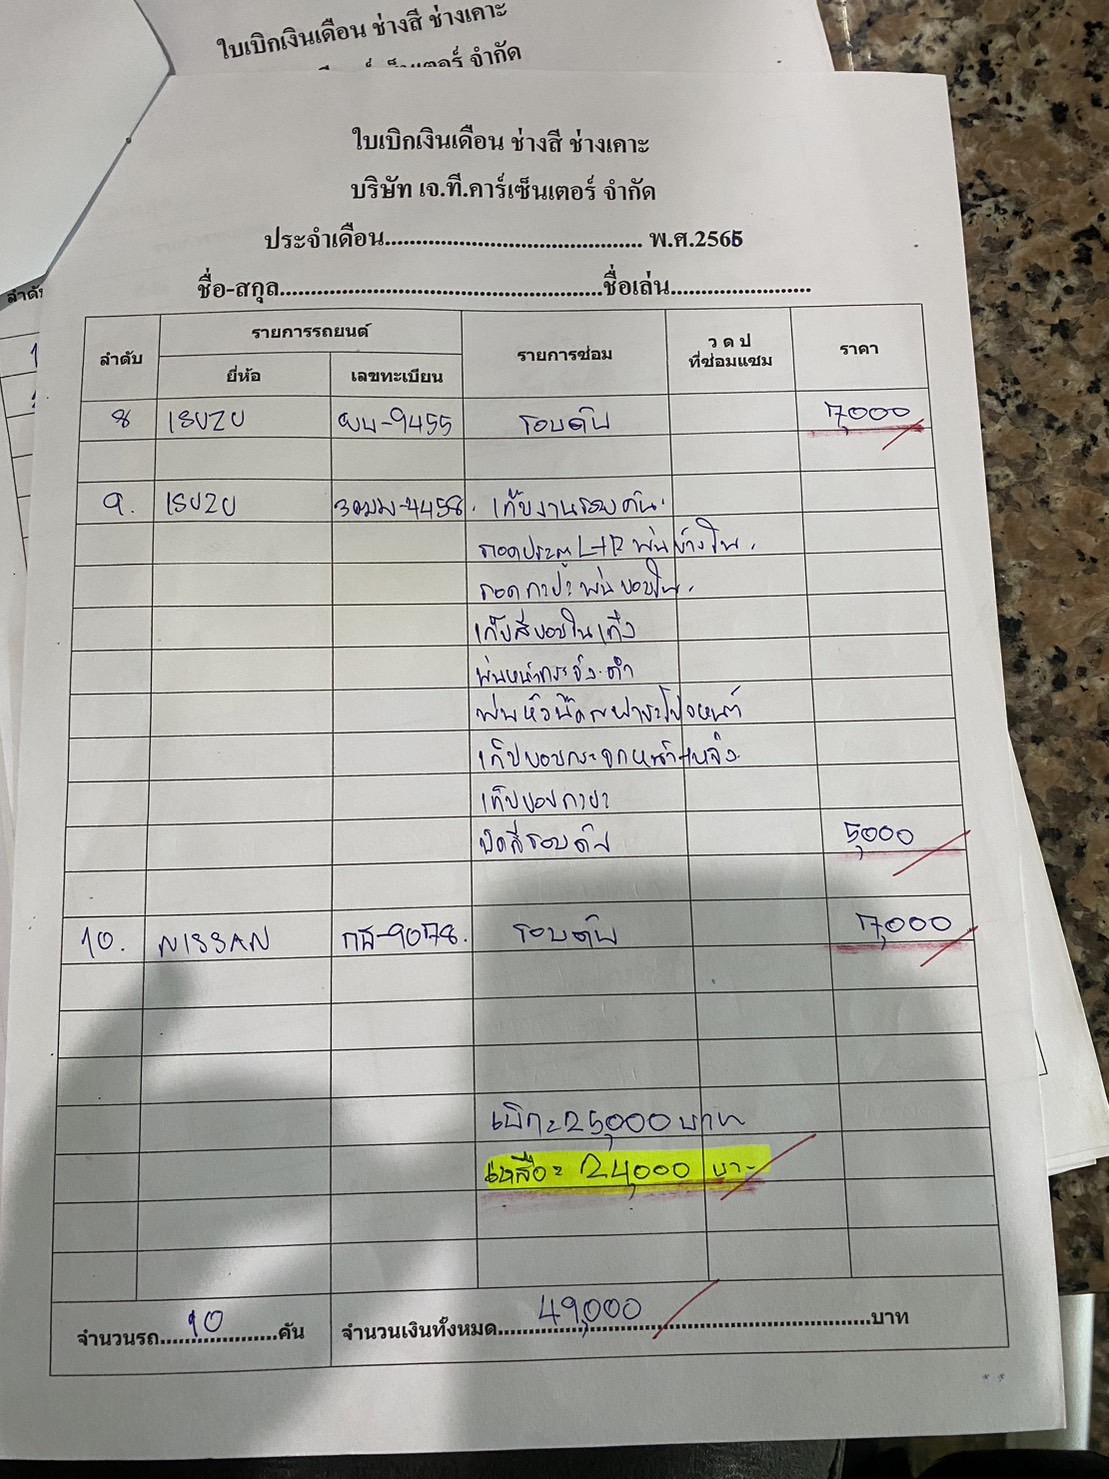 ใบเบิกเงินเดือน ช่างสี ช่างเคาะ
ใบเบิกเงินเดือน ช่างสี ช่างเคาะ
บริษัท เจ.ที.คาร์เซ็นเตอร์ จำกัด
ประจำเดือน.......................................... พ.ศ.2565
ชื่อ-สกุล.....................................................ชื่อเล่น.......................
ลำดับ รายการรถยนต์ รายการซ่อม ว ด ป ที่ซ่อมแซม ราคา
ยี่ห้อ เลขทะเบียน
8 ISUZU ผน-9455 รอบคัน 7,000
9. ISUZU 3ฒฆ-4458. เก็บงานรอบคัน.
ถอดประตู L+R พ่นข้างใน.
ถอดกาบ พ่นขอบใน.
เก็บสีขอบในเก๋ง
พ่นหน้ากระจัง.ดำ
พ่นหัวน๊อต
เก็บขอบกระจกหน้า+หลัง.
เก็บขอบ
ขัดสีรอบคัน 5,000
10. NISSAN 9078. รอบคัน 7,000
เบิก=25,000 บาท
เหลือ= 24,000 บาท
จำนวนรถ 10 คัน จำนวนเงินทั้งหมด 49,000 บาท